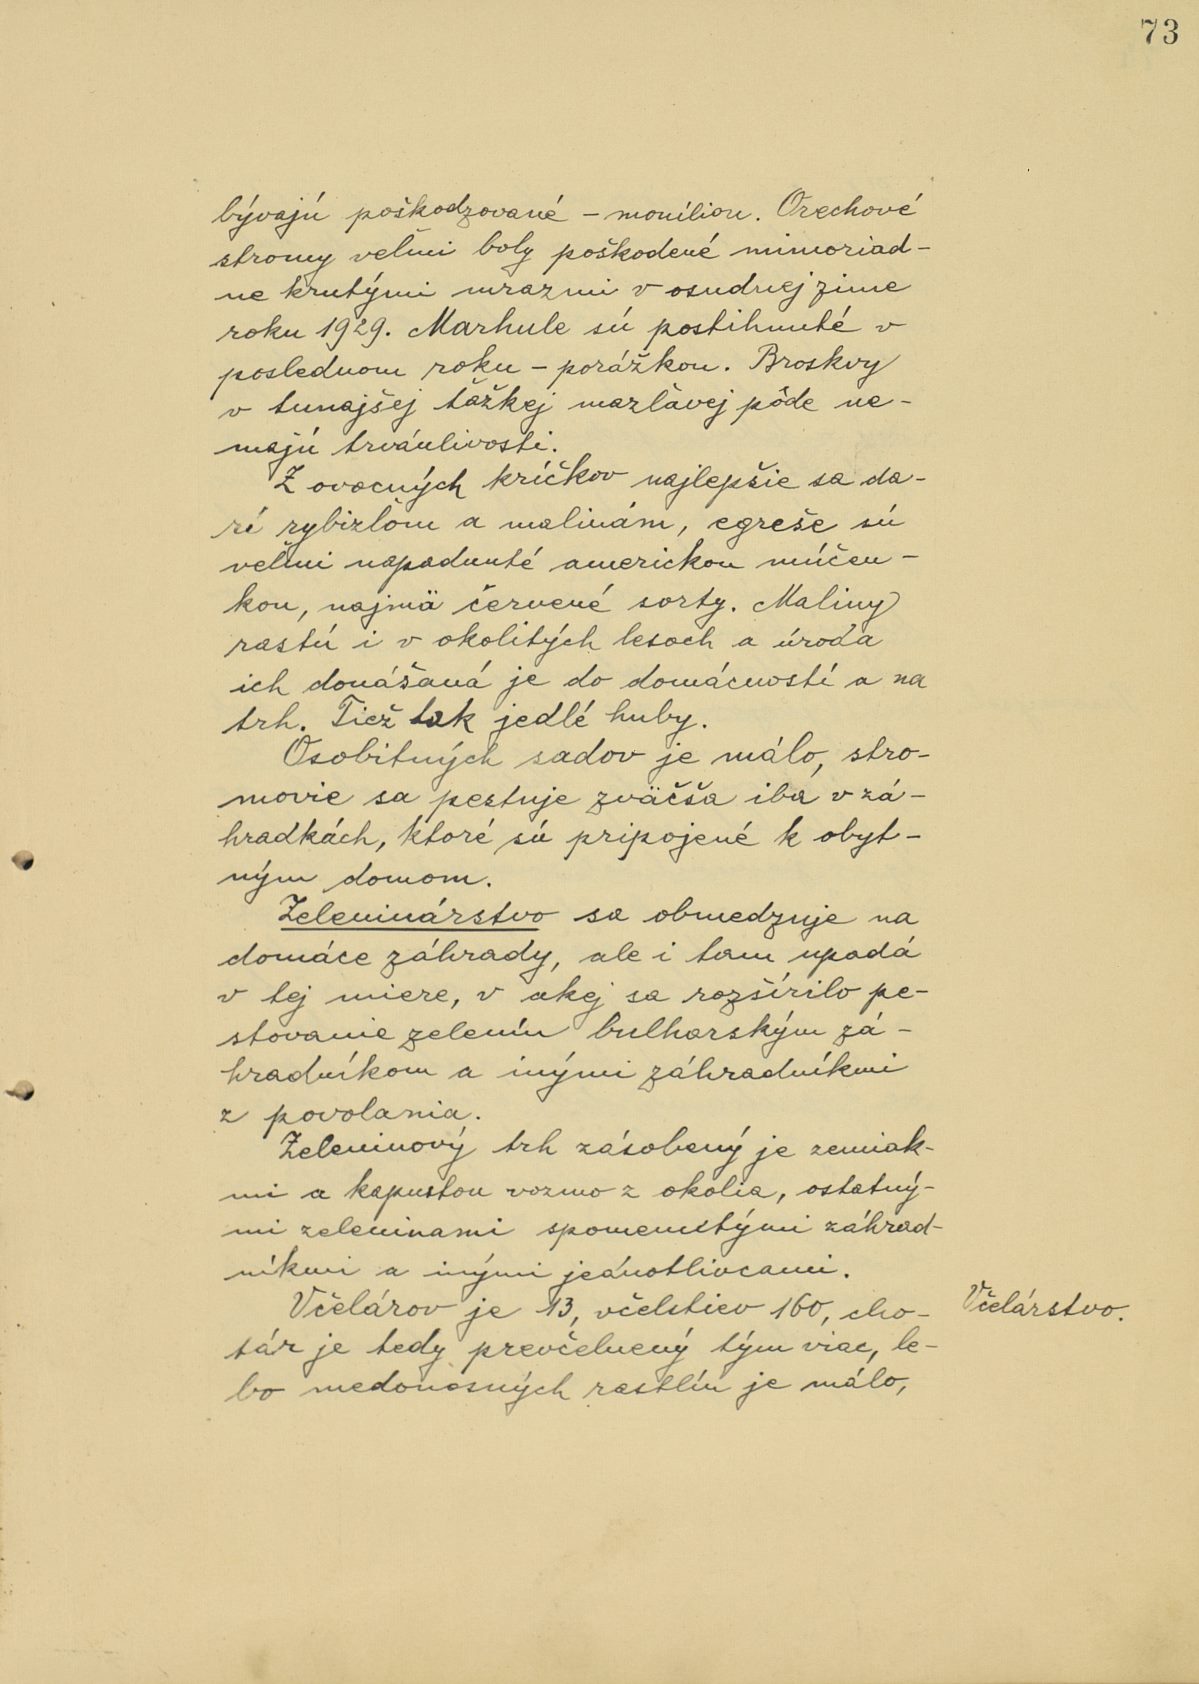 73
bývajú poškodzované – moníliou. Orechové
stromy veľmi boly poškodené mimoriad-
ne krutými mrazmi v osudnej zime
roku 1929. Marhule sú postihnuté v
poslednom roku – porážkou. Broskvy
v tunajšej ťažkej mazľavej pôde ne-
majú trvánlivosti.
Z ovocných kríčkov najlepšie sa da-
rí rybizľom a malinám, egreše sú
veľmi napadnuté americkou múčen-
kou, najmä červené sorty. Maliny
rastú i v okolitých lesoch a úroda
ich donášaná je do domácností a na
trh. Tiež tak jedlé huby.
Osobitných sadov je málo, stro-
movie sa pestuje zväčša iba v zá-
hradkách, ktoré sú pripojené k obyt-
ným domom.
Zeleninárstvo sa obmedzuje na
domáce záhrady, ale i tam upadá
v tej miere, v akej sa rozšírilo pe-
stovanie zelenín bulharským zá-
hradníkom a inými záhradníkmi
z povolania.
Zeleninový trh zásobený je zemiak-
mi a kapustou vozmo z okolia, ostatný-
mi zeleninami spomenutými záhrad-
níkmi a inými jednotlivcami.
Včelárov je 13, včelstiev 160, cho-
Včelárstvo.
tár je tedy prevčelnený tým viac, le-
bo medonosných rastlín je málo,